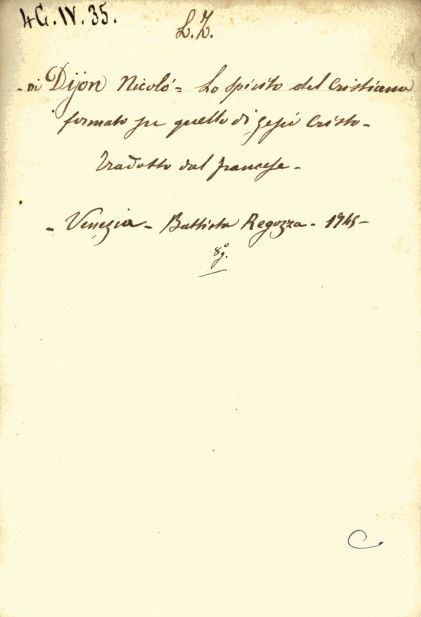 4G.IV.35.
L.Z.
- Di Dijon Nicoló = Lo spirito del Cristiano
formato su quello di Gesù Cristo -
Tradotto dal francese -
- Venezia - Battista Regozza - 1745 -
8º
C